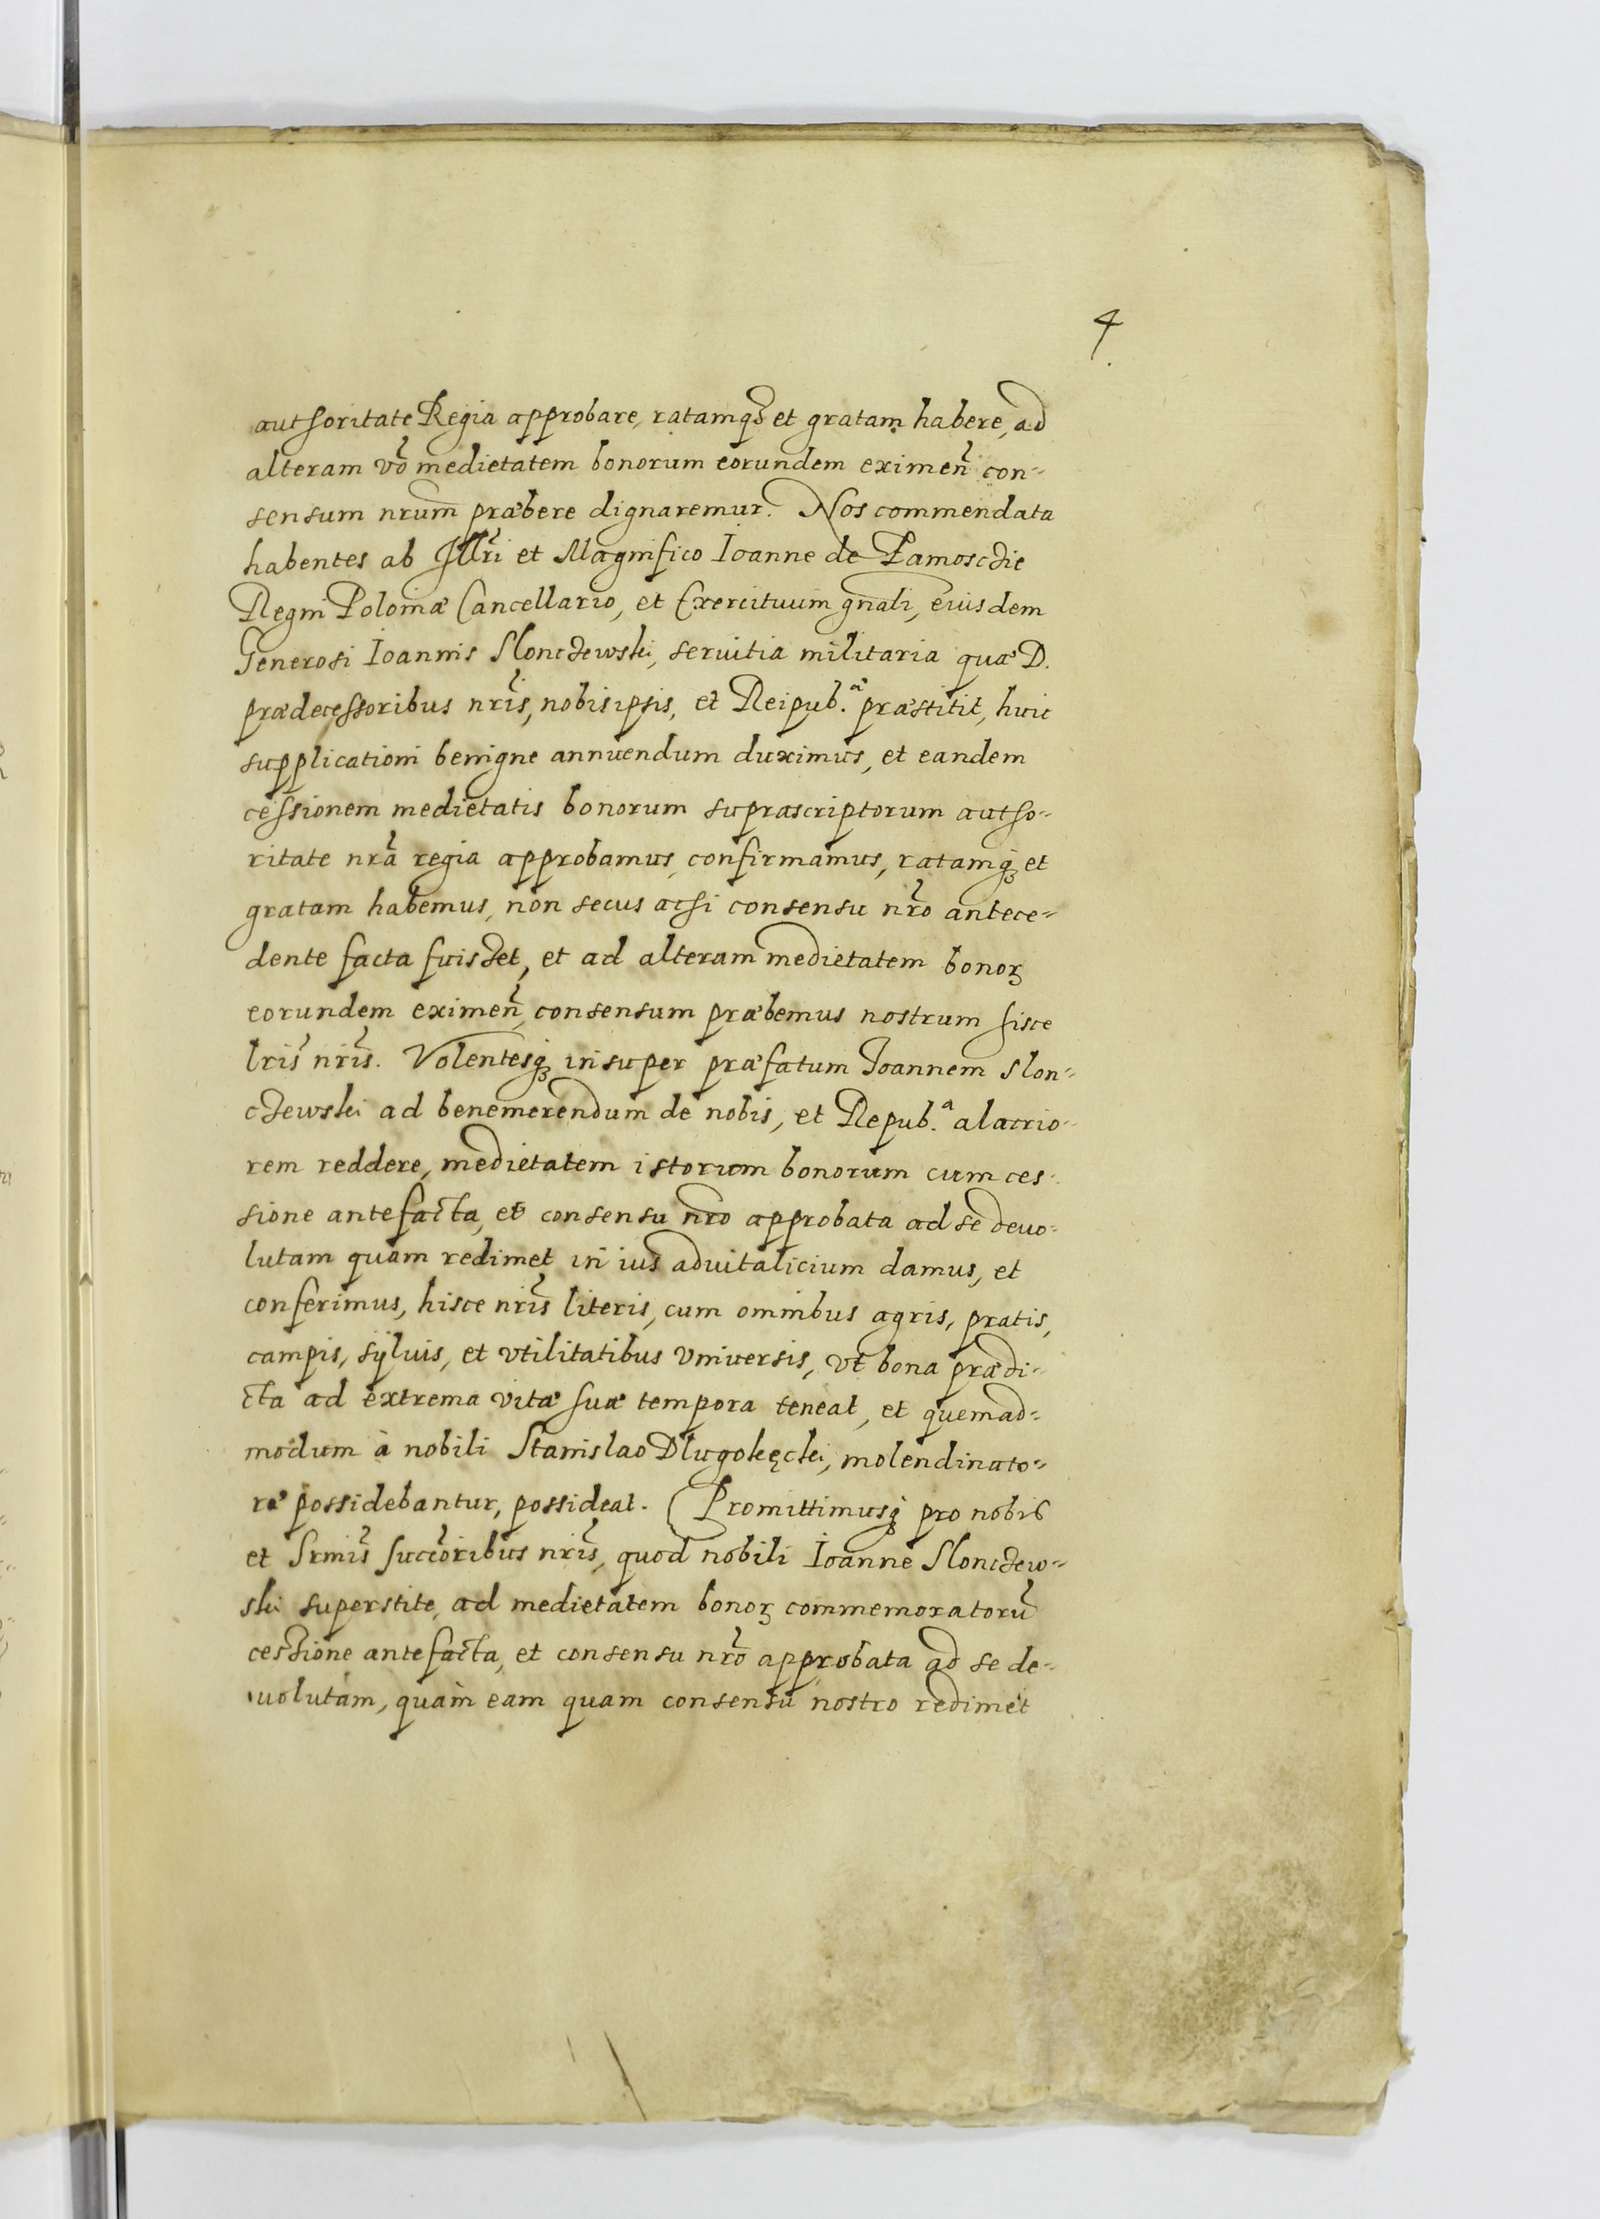 4
authoritate Regia approbare, ratamq3 et gratam habere, ad
alteram vo medietatem bonorum eorundem eximen̄ con=
sensum nrum præbere dignaremur. Nos commendata
habentes ab Illri et Magnifico Ioanne de Zamosczie
Regni Poloniæ Cancellario, et Exercituum gnāli, eiusdem
Generosi Ioannis Slonczewski, seruitia militaria quæ D.
prædecessoribus nris, nobis ipsis, et Reipub.ᵃ præstitit, huic
supplicationi benigne annuendum duximus, et eandem
cessionem medietatis bonorum suprascriptorum autho=
ritate nra regia approbamus, confirmamus, ratamq3 et
gratam habemus, non secus acsi consensu nro antece=
dente facta fuisset, et ad alteram medietatem bonoꝝ
eorundem eximen̄, consensum præbemus nostrum hisce
lris nris. Volentesq3 insuper præfatum Ioannem Slon=
czewski ad benemerendum de nobis, et Repub.ᵃ alacrio=
rem reddere, medietatem istorum bonorum cum ces=
sione antefacta, et consensu nro approbata ad se deuo=
lutam quam redimet in ius aduitalicium damus, et
conferimus, hisce nris literis, cum omnibus agris, pratis,
campis, syluis, et vtilitatibus vniuersis, vt bona prædi=
cta ad extrema vitæ suæ tempora teneat, et quemad=
modum à nobili Stanislao Dlugokęcki, molendinato=
re possidebantur, possideat. Promittimusq3 pro nobis
et Srmis succoribus nris, quod nobili Ioanne Slonczew=
ski superstite, ad medietatem bonoꝝ commemoratorū
cessione antefacta, et consensu nro approbata ad se de=
uolutam, quàm eam quam consensu nostro redimet